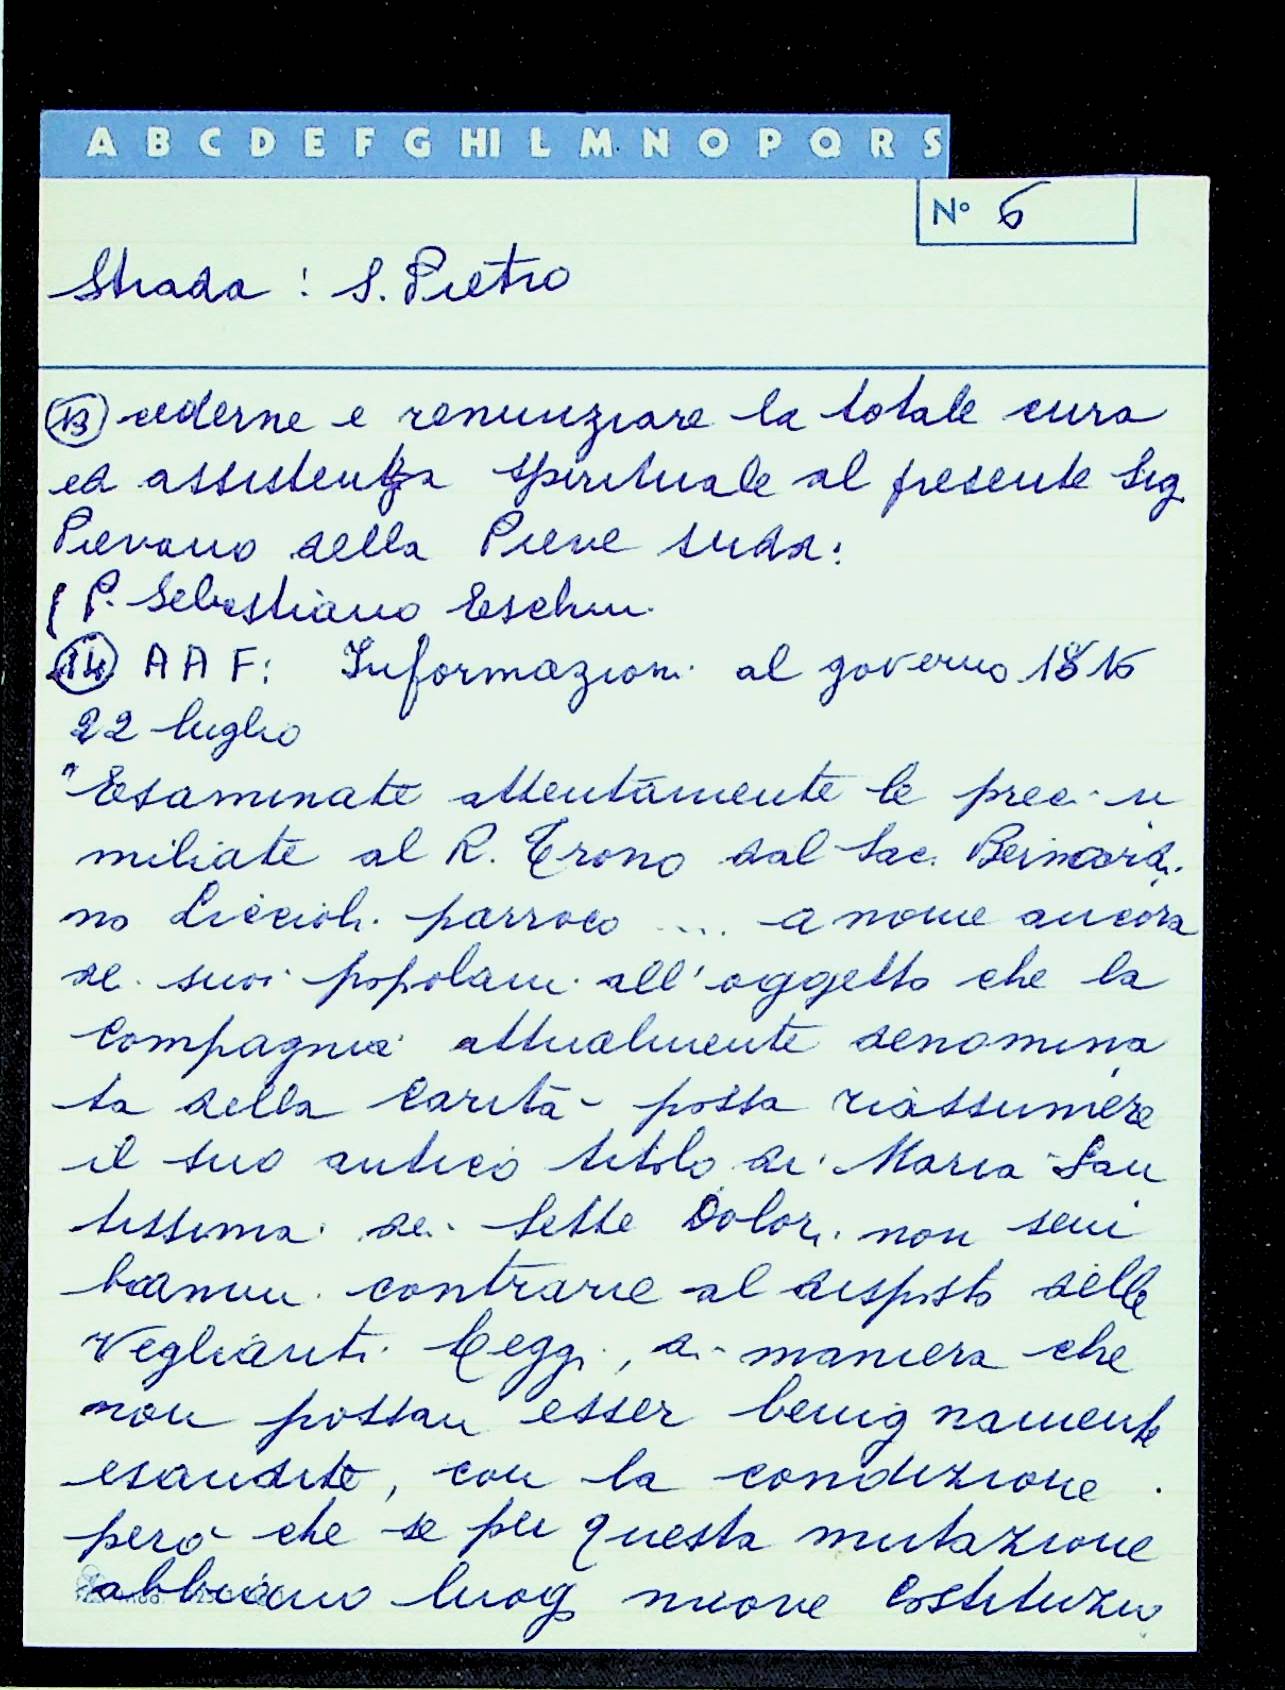 A B C D E F G HI L M N O P Q R S
N° 6
Strada : S. Pietro
13 cederne e renunziare la totale cura
ed assistenza spirituale al presente Sig
Pievano della Pieve sudd:
( P. Sebastiano Eschini
14 A A F: Informazioni al governo 1816
22 luglio
"Esaminate attentamente le preci u
miliate al R. Trono dal Sac. Bernardi
no Liccioli parroco .... a nome ancora
de suoi popolani all'oggetto che la
Compagnia attualmente denomina
ta della Carità possa riassumere
il suo antico titolo di Maria San
tissima dei Sette Dolori non sem
branmi contrarie al disposto delle
Veglianti Leggi, di maniera che
non possan esser benignamente
esaudite, con la condizione
però che se per questa mutazione
abbiano luog nuove Costituzio